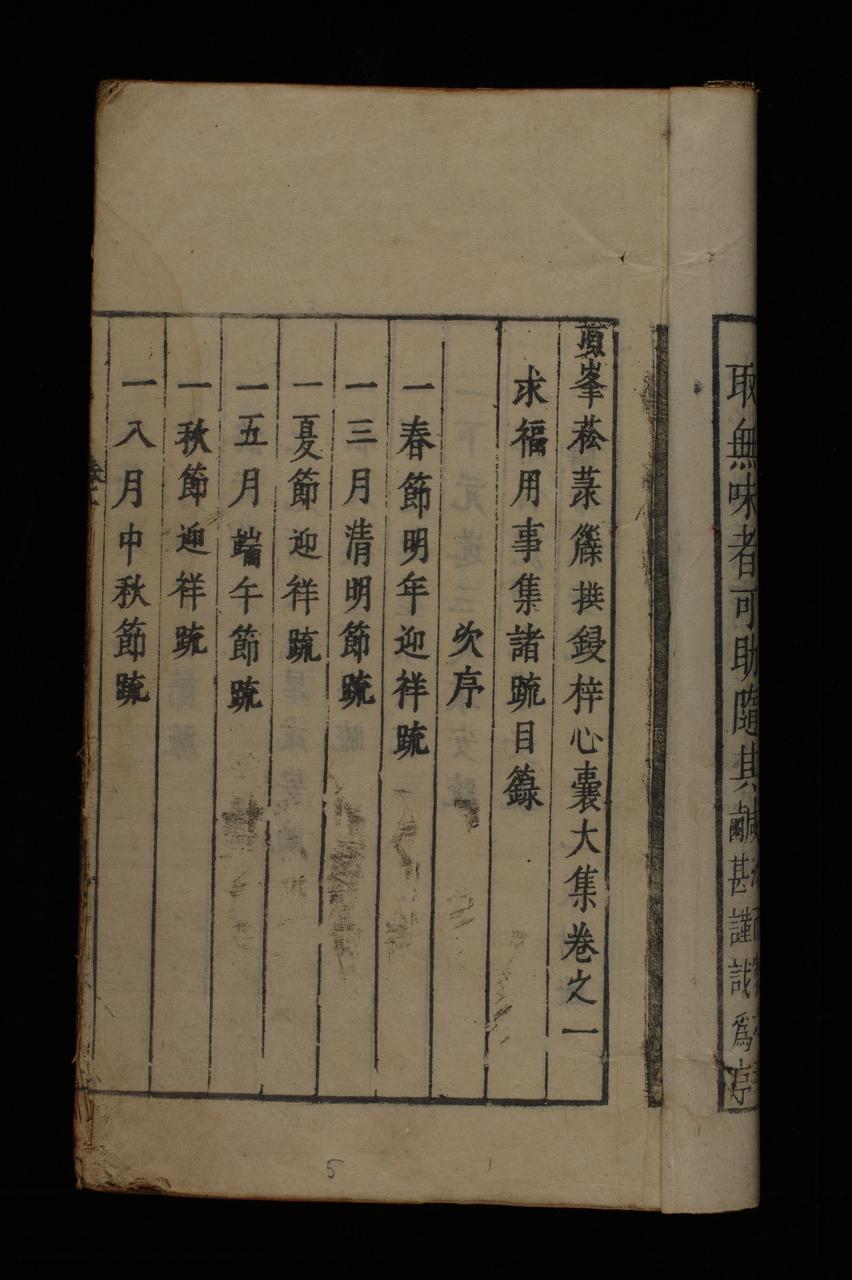 取無味者可助隨其鹹
甚謹識爲序
峯菘菉篠拱鋟梓心囊大集卷之一
求福用事集諸䟽目錄
次序
一春節明年迎祥䟽
一三月清明節䟽
一夏節迎祥䟽
一五月端午節䟽
一秋節迎祥䟽
一八月中秋節䟽
5